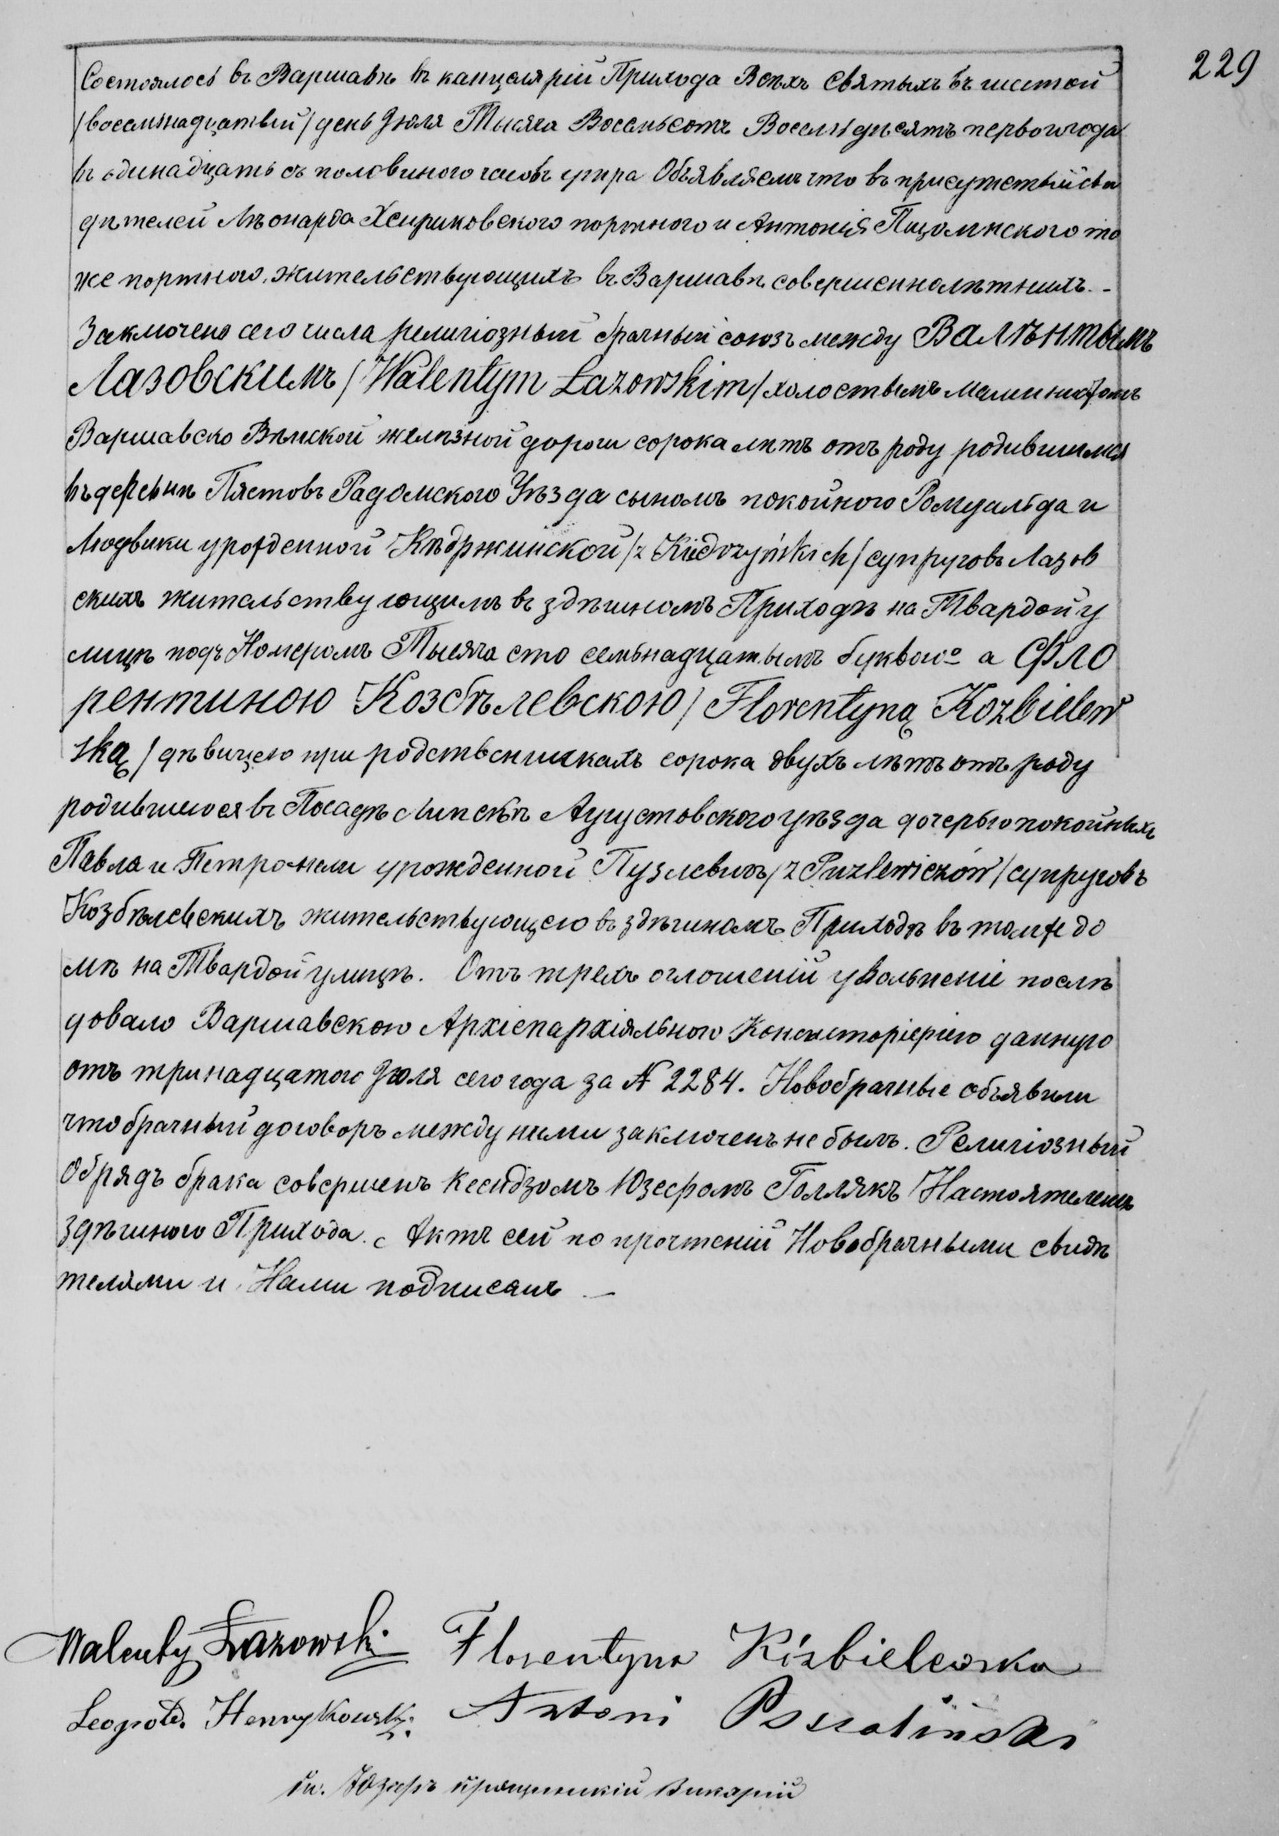 229
Состоялось въ Варшавѣ въ канцелярiи Прихода Всѣхъ Святыхъ въ шестой
/восемнадцатый/ день Iюля Тысяча Восемьсотъ Восемьдесятъ перваго года
въ одинадцать съ половиного часовъ утра Объявляемъ что въ присутствiи сви
дѣтелей Леонарда Хенриковского портного и Антонiя то
же портного, жительствующихъ въ Варшавѣ совершеннолѣтнихъ. –
Заключено сего числа религiозный брачный союзъ между Валѣнтымъ
Лазовскимъ /Walentym Łazowskim/ холостымъ машинистомъ
Варшавско Вѣнской желѣзной дороги сорока лѣтъ отъ роду родившимся
въ деревнѣ Пястовъ Радомского Уѣзда сыномъ покойного Ромуальда и
Людвики урожденной Кѣдржинской /z Kiedrzyńskich/ супруговъ Лазов
скихъ жительствующимъ въ здѣшномъ Приходѣ на Твардой у
лицѣ подъ Номеромъ Тысяча сто семьнадцатымъ буквою а Фло
рентиною Козбѣлевскою /Florentyną Kozbielew
ską/ дѣвицею при родственникахъ сорока двухъ лѣтъ отъ роду
родившеюся въ Посадѣ Липскѣ Аугустовского уѣзда дочерью покойныхъ
Павла и Петронели урожденной Пузлевичъ /z Puzlewiczów/ супруговъ
Козбѣлевскихъ жительствующею въ здѣшномъ Приходѣ въ томже до
мѣ на Твардой улицѣ. Отъ трехъ оглошенiй увольненiе послѣ
довало Варшавскою Архiепархiяльною Консисторiерiею данную
отъ тринадцатого Iюля сего года за № 2284. Новобрачные объявили
что брачный договоръ между ними заключенъ не былъ. Религiозный
Обрядъ брака совершенъ Ксендзомъ Юзефомъ Голлякъ Настоятелемъ
здѣшного Прихода. Актъ сей по прочтенiи Новобрачными свидѣ
телями и Нами подписанъ –
Walenty Łazowski Florentyna Kozbielewska
Leopold Henrykowski Antoni
Юзефъ Викарiй